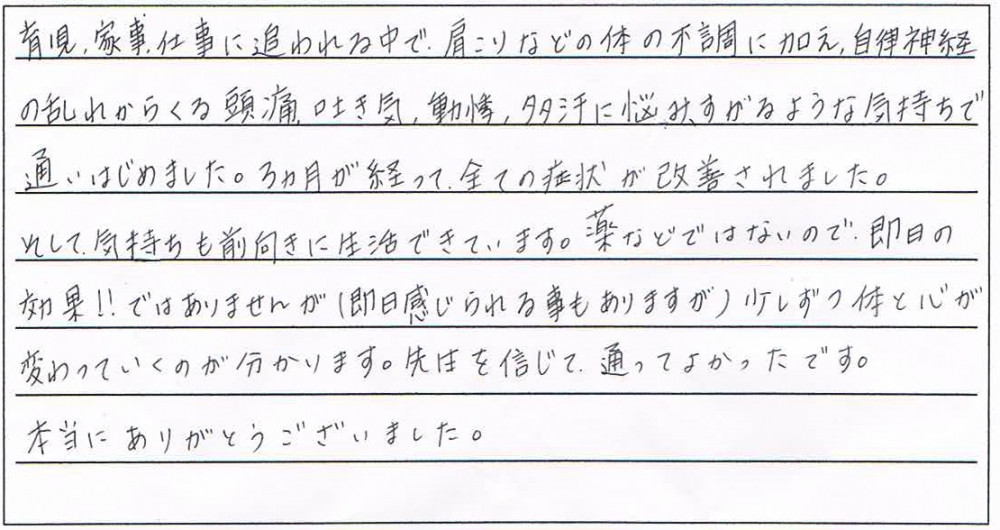 育児、家事、仕事に追われる中で、肩こりなどの体の不調に加え、自律神経
の乱れからくる頭痛、吐き気、動悸、多汗に悩み、すがるような気持ちで
通いはじめました。3ヵ月が経って、全ての症状が改善されました。
そして、気持ちも前向きに生活できています。薬などではないので、即日の
効果!!ではありませんが(即日感じられる事もありますが)少しずつ体と心が
変わっていくのが分かります。先生を信じて、通ってよかったです。
本当にありがとうございました。